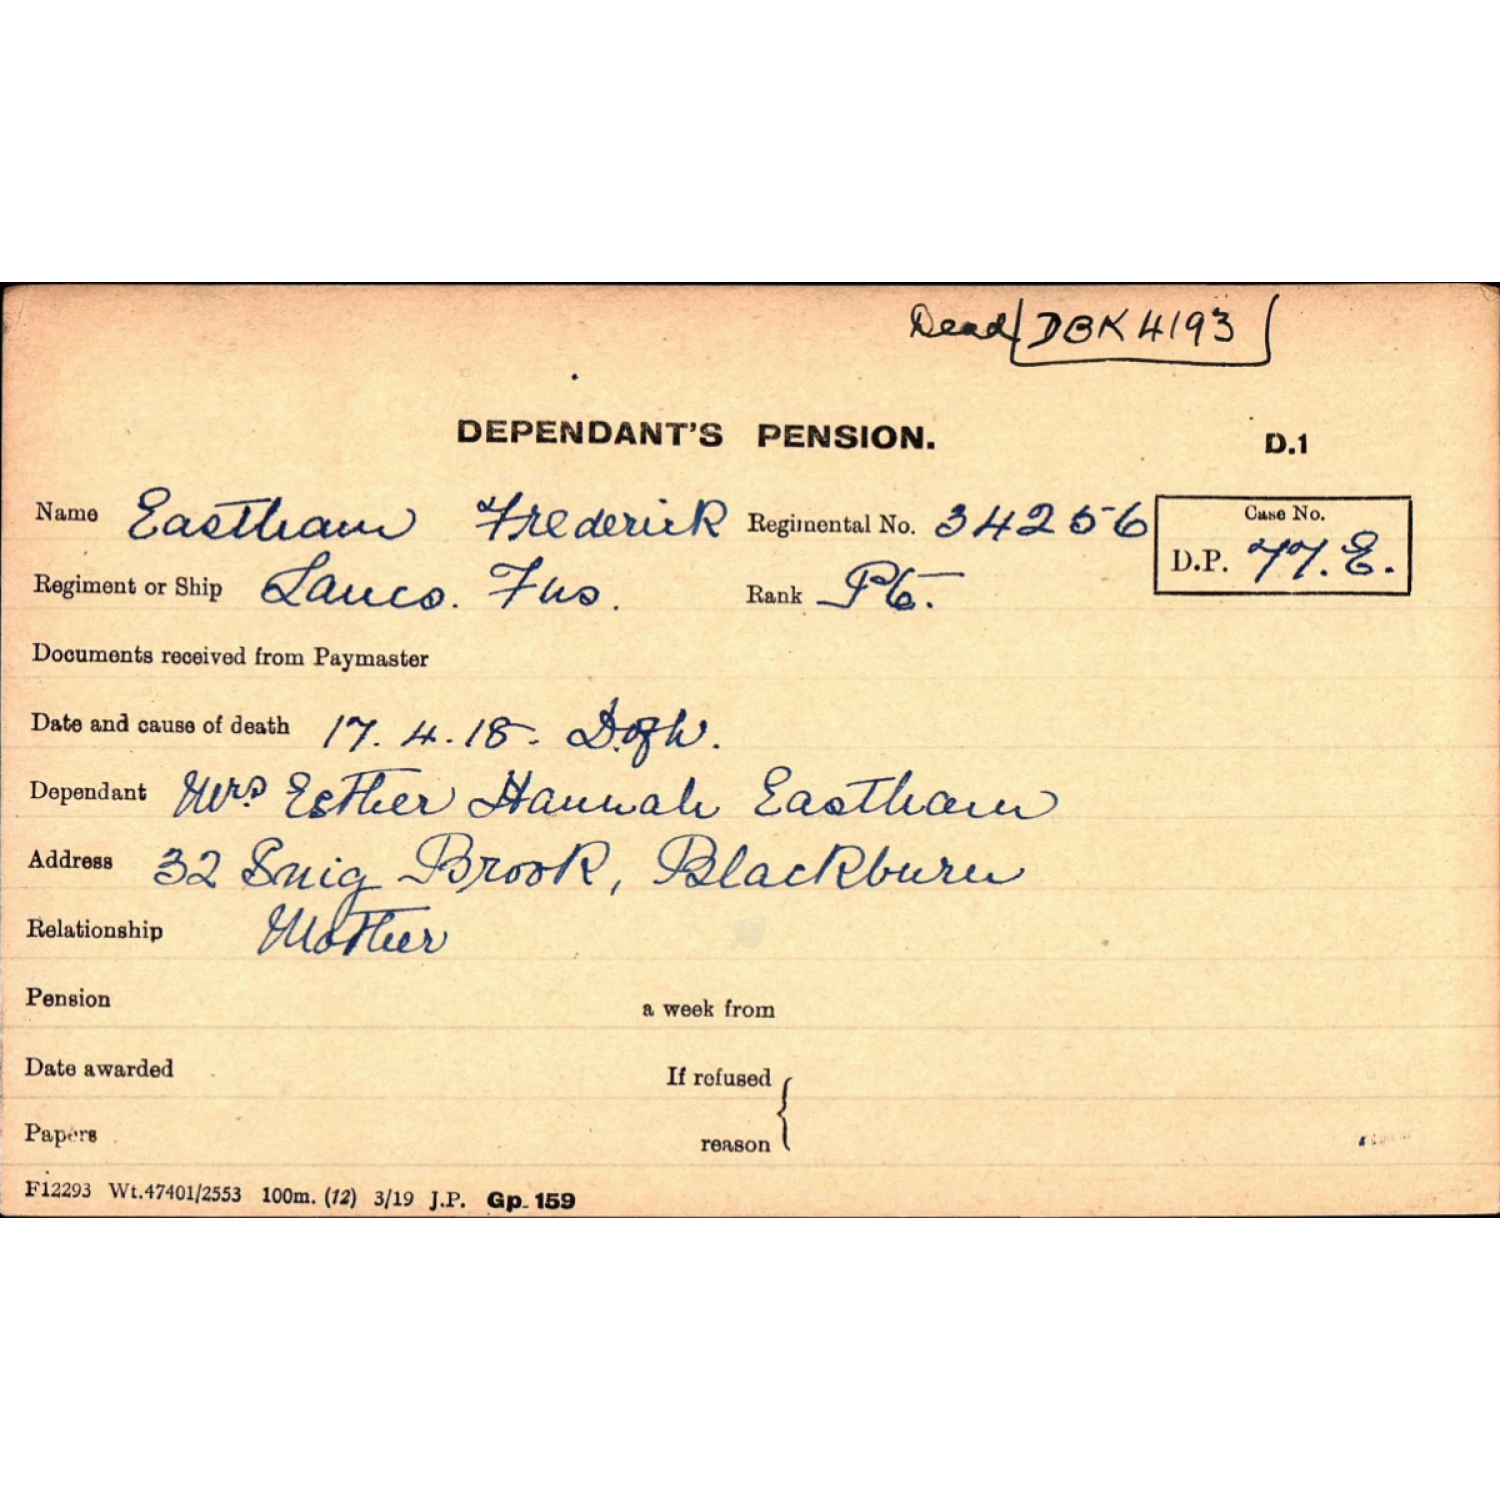 Dead DBK 4193
DEPENDANT'S PENSION. D.1
Name Eastham Frederick Regimental No. 34256 Case No.
Regiment or Ship Lancs. Fus. Rank Pte. D.P. 77.E.
Documents received from Paymaster
Date and cause of death 17.4.18. D.ofW.
Dependant Mrs Esther Hannah Eastham
Address 32 Snig Brook, Blackburn
Relationship Mother
Pension a week from
Date awarded If refused
Papers reason
F12293 Wt.47401/2553 100m. (12) 3/19 J.P. Gp. 159